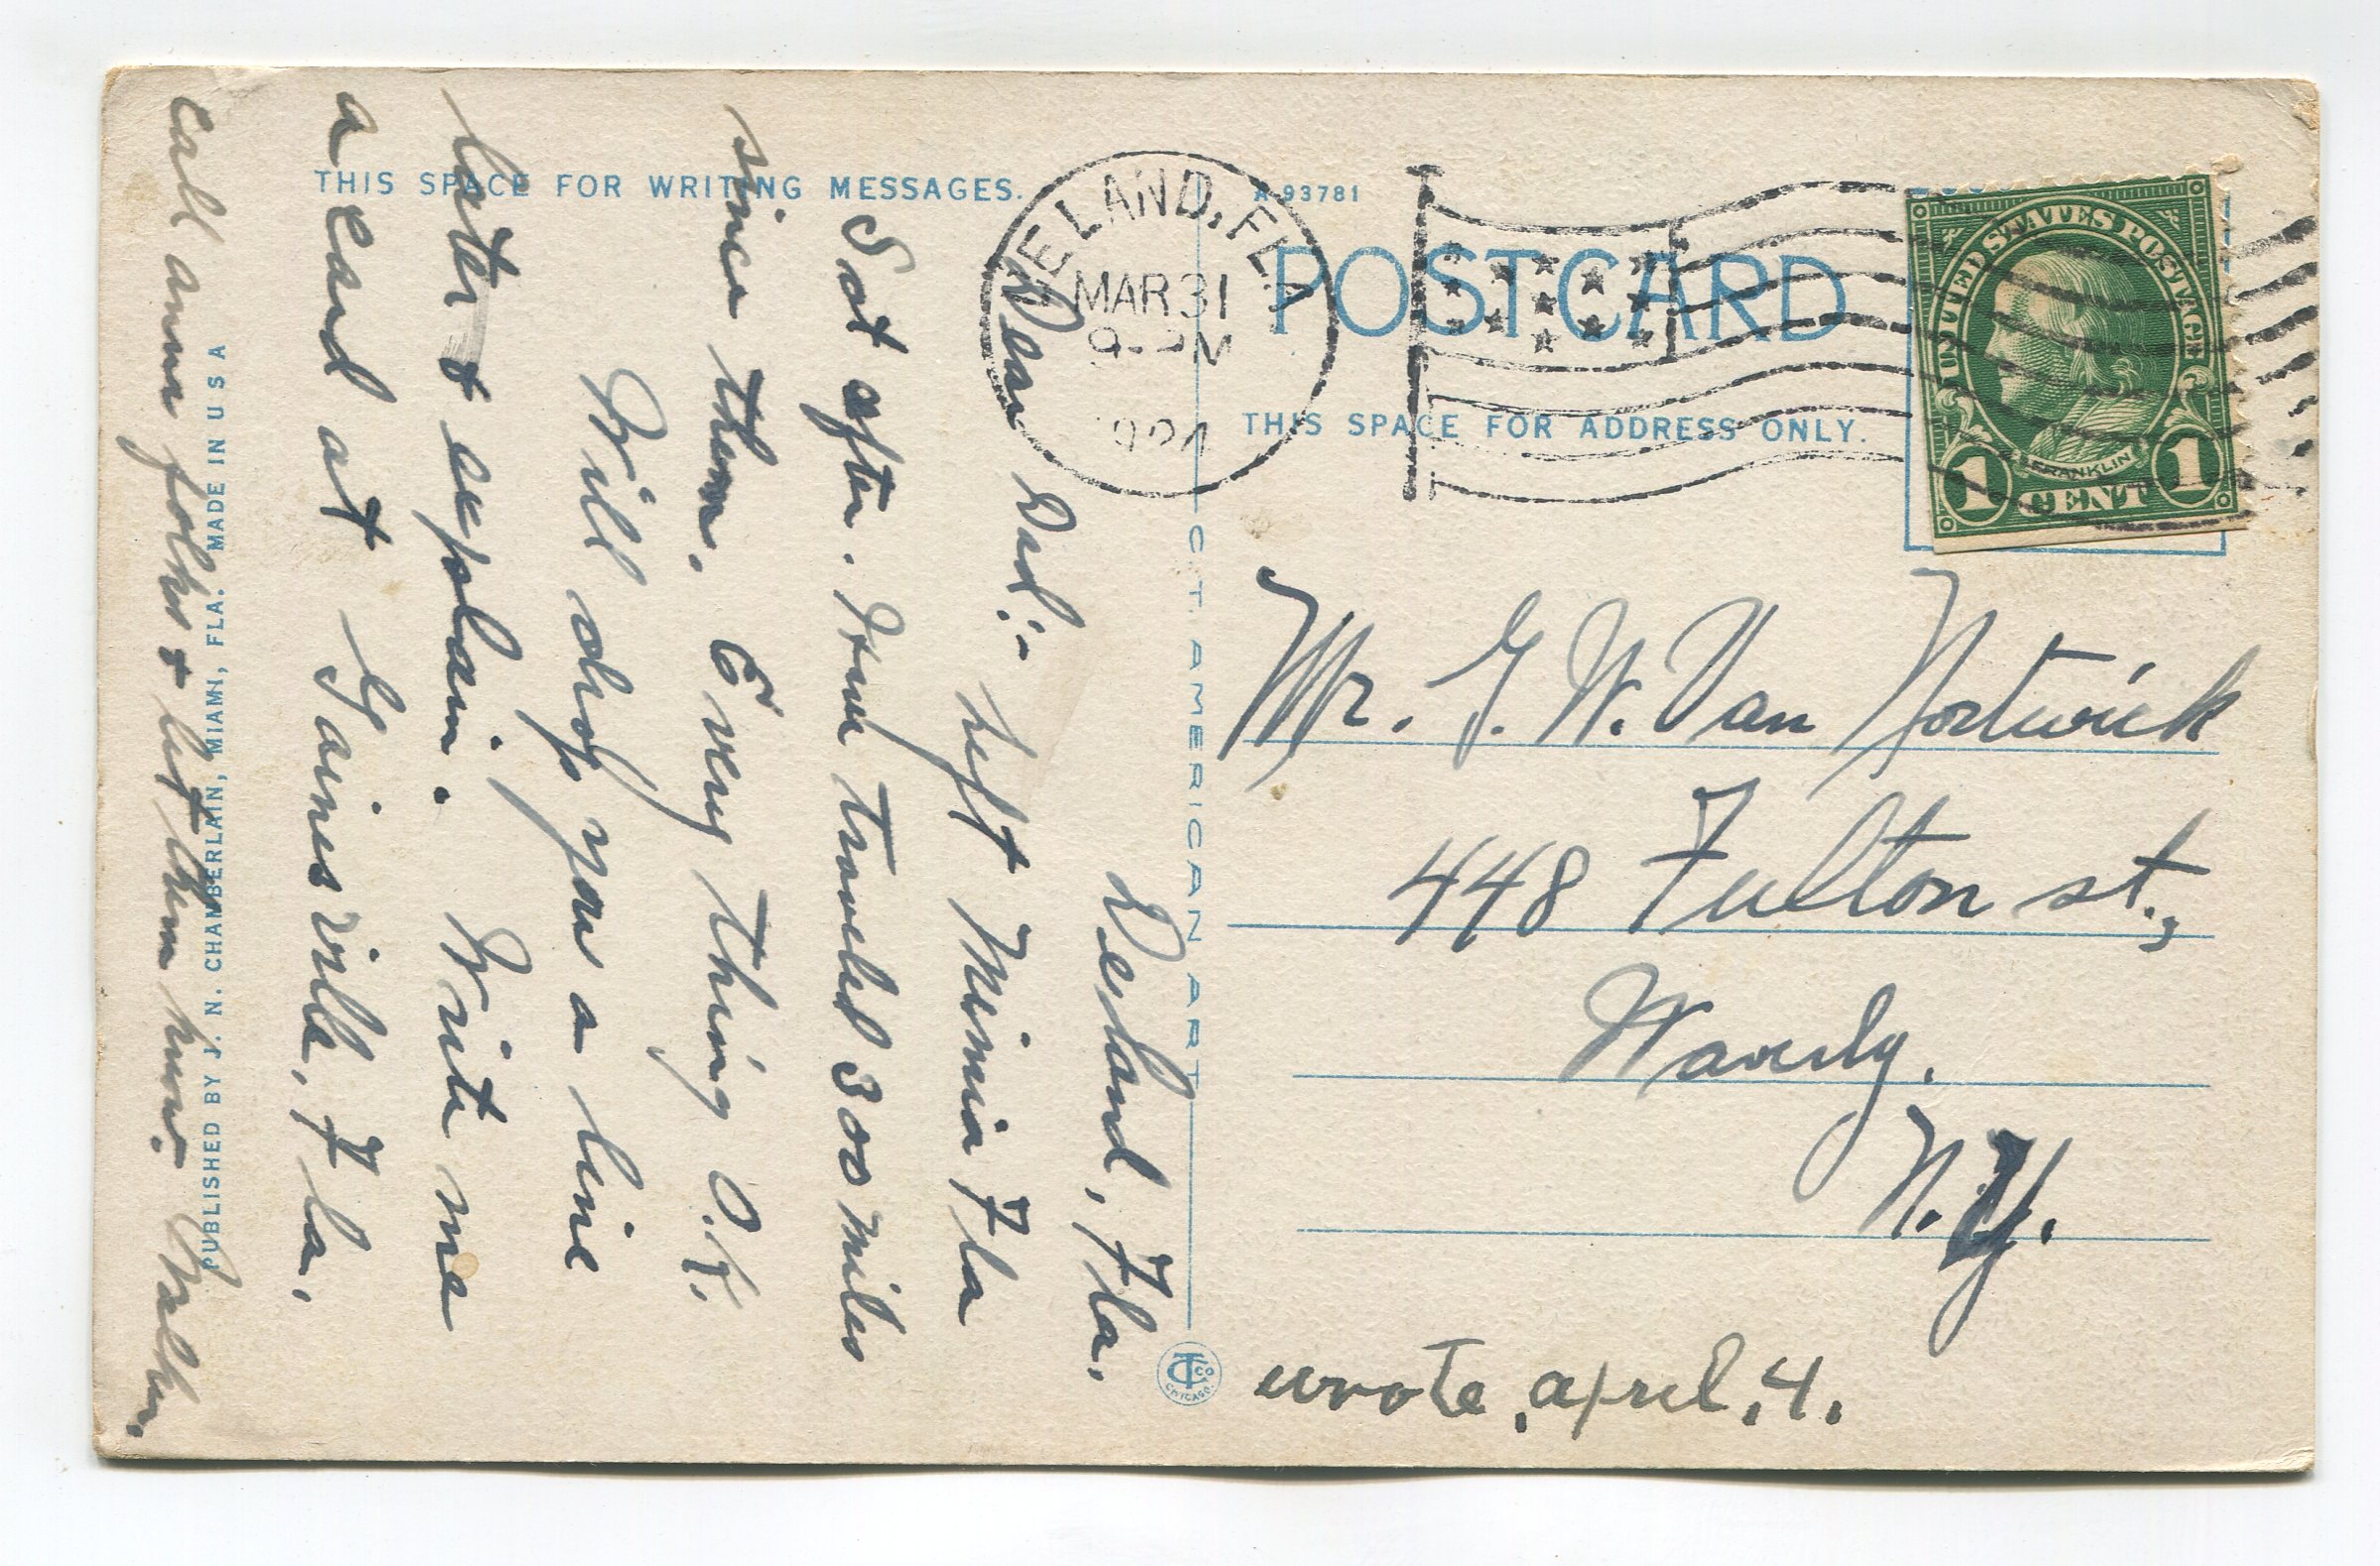 THIS SPACE FOR WRITING MESSAGES.
A-93781
POSTCARD
THIS SPACE FOR ADDRESS ONLY.
DELAND, FLA
MAR 31
UNITED STATES POSTAGE
FRANKLIN
1 CENT 1
Deland, Fla.
Dear Dad:-
Left Mimia Fla
Sat after. Have traveled 300 miles
since then. Every thing O.K.
Will drop you a line
later & explain. Write me
a card at Gainesville, Fla.
call anna folks & let them know.
Mr. G. W. Van Nortwick
448 Fulton st.,
Waverly.
N.Y.
wrote. april. 4.
C.T. AMERICAN ART
CT CO
CHICAGO
PUBLISHED BY J. N. CHAMBERLAIN, MIAMI, FLA. MADE IN U S A